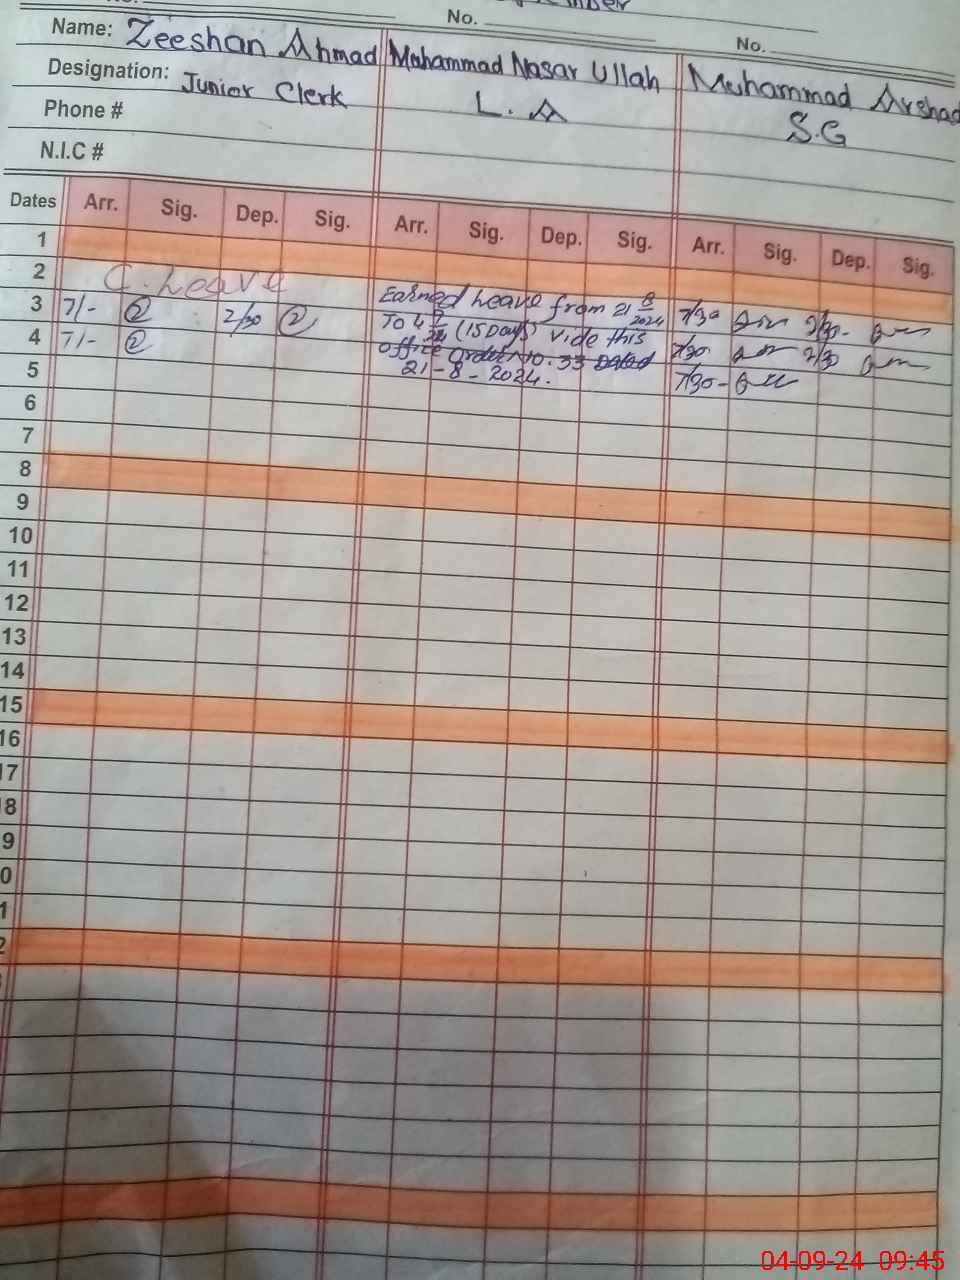 No.
No.
Name: Zeeshan Ahmad Mohammad Nasar Ullah Muhammad Arshad
Designation: Junior Clerk L. A S.G
Phone #
N.I.C #
Dates Arr. Sig. Dep. Sig. Arr. Sig. Dep. Sig. Arr. Sig. Dep. Sig.
1
2 C. Leave Earned Leave from 21 8/2024 7/30 2/30-
3 7/- 2/30 To 4 9/24 (15 Days) vide this 7/30 2/30
4 7/- office order No. 33 Dated 7/30-
5 21-8-2024.
6
7
8
9
10
11
12
13
14
15
16
17
8
9
0
1
2
04-09-24 09:45